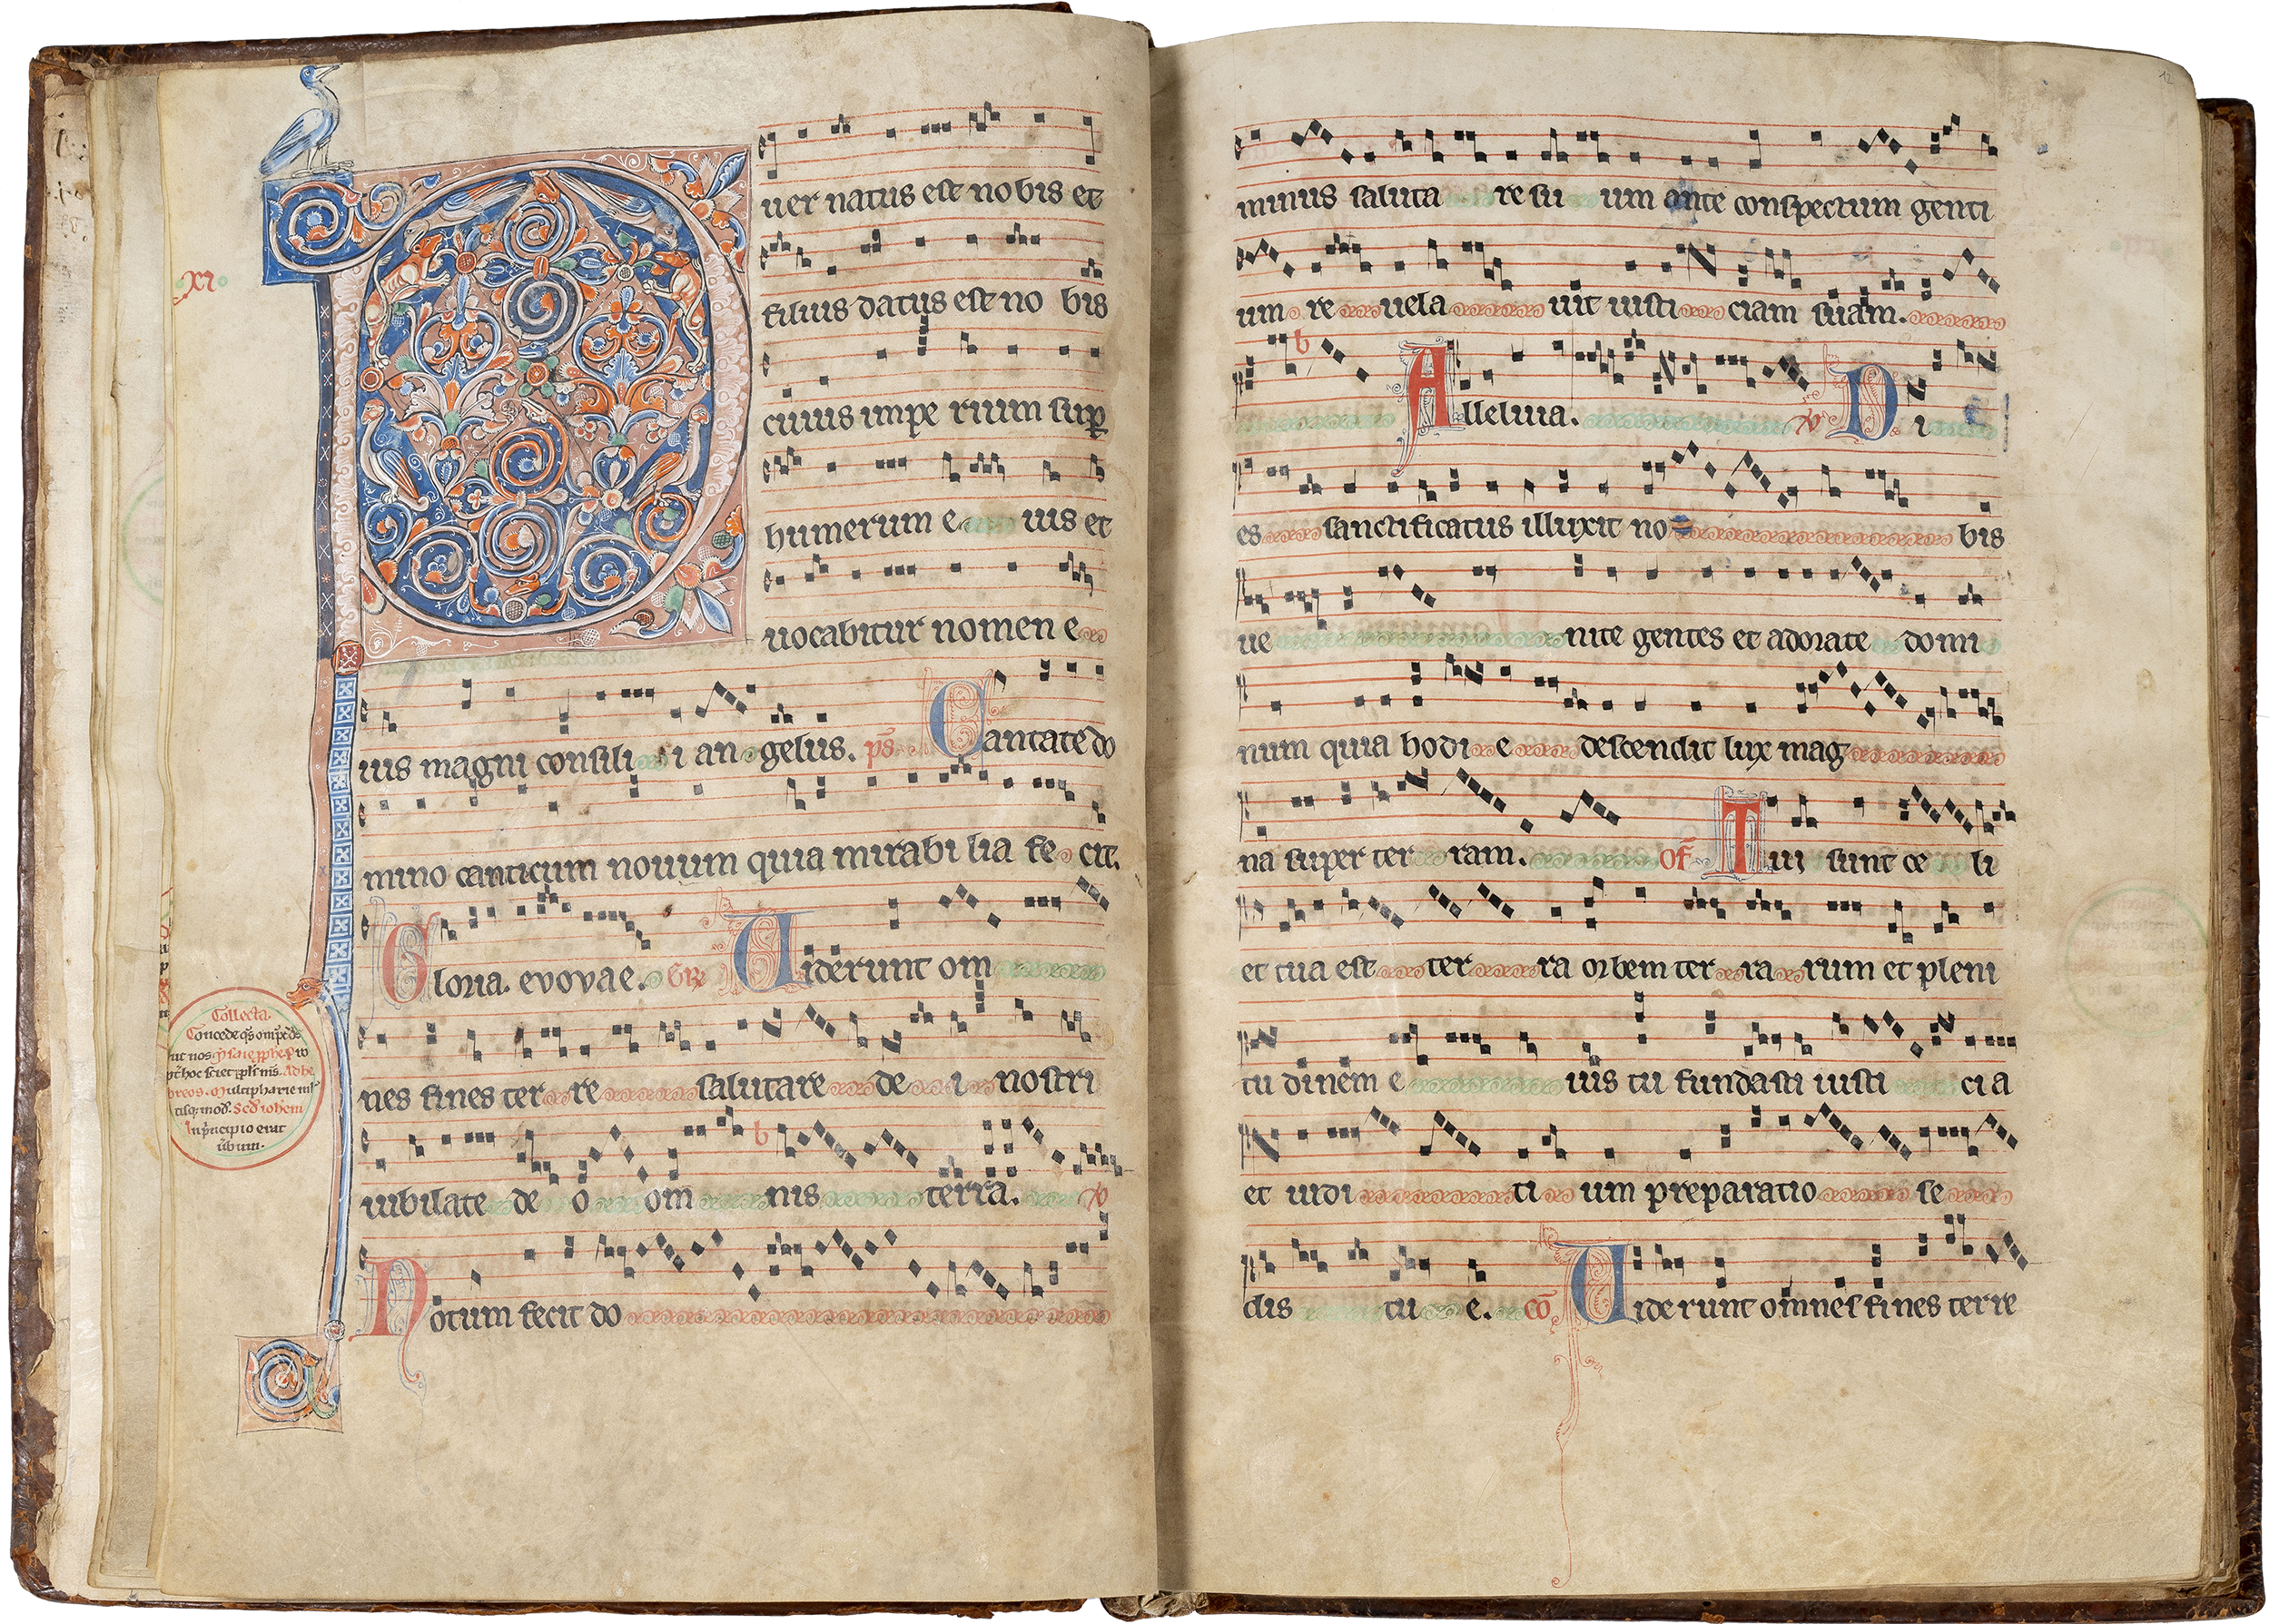 xi
P
uer natus est nobis et
filius datus est no bis
cuius impe rium sup
humerum e uis et
uocabitur nomen e
ius magni consili i an gelus. ps Cantate do
mino canticum nouum quia mirabi lia fe cit.
Gloria. evovae. Gr Uiderunt om
nes fines ter re salutare de i nostri
iubilate de o om nis terra. V
Notum fecit do
Collecta.
Concede qs omps ds
ut nos
Ad he
breos. Multipharie mul
tisq; mod. Scd iohem
In principio erat
uerbum.
12
minus saluta re su um ante conspectum genti
um re uela uit iusti ciam suam.
Alleluia. V Di
es sanctificatus illuxit no bis
ue nite gentes et adorate domi
num quia hodi e descendit lux mag
na super ter ram. of Tui sunt ce li
et tua est ter ra orbem ter ra rum et pleni
tudinem e ius tu fundasti iusti ci a
et iudi ti um preparatio se
dis tu e. co Uiderunt omnes fines terre